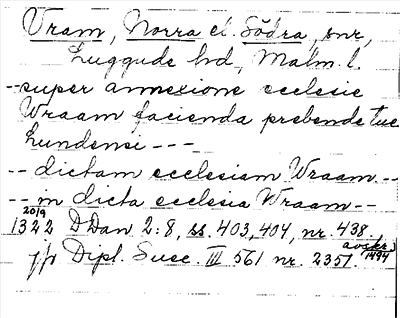 Vram, Norra el. Södra, snr,
Luggude hd, Malm. l.
--super annexione ecclesie
Wraam facienda prebende tue
Lundensi ---
-- dictam ecclesiam Wraam --
-- in dicta ecclesia Wraam --
20/9
1322 DDan 2:8, ss. 403, 404, nr. 438,
avskr. 1494
jfr Dipl. Suec. III 561 nr. 2351.